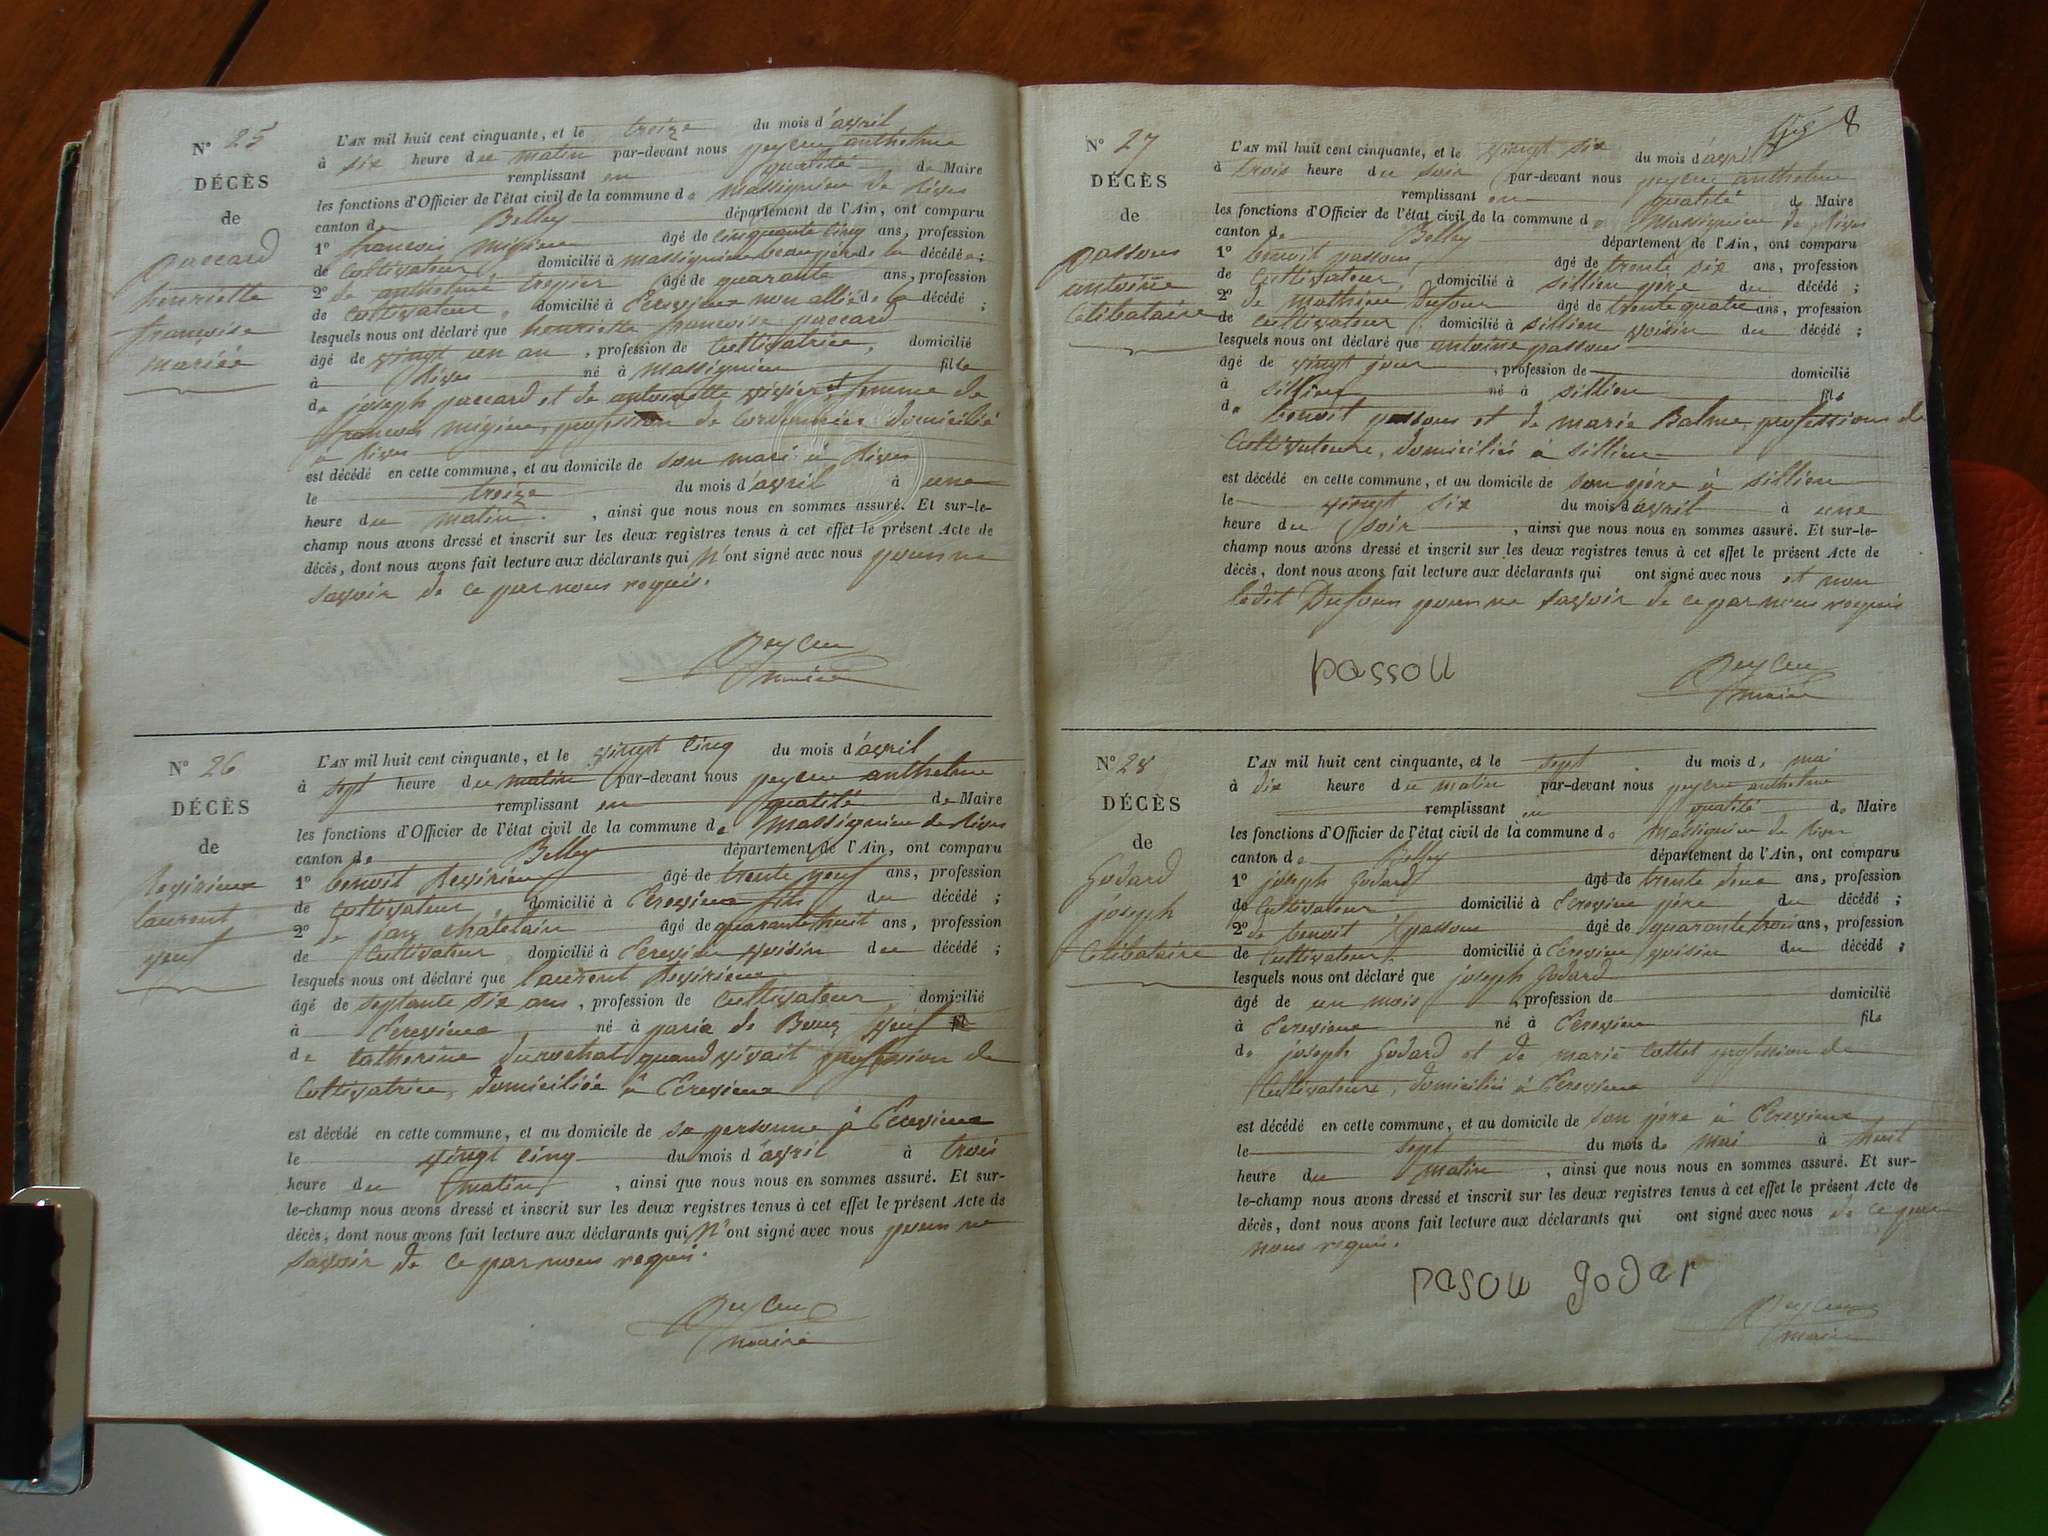 N° 25
DÉCÈS
de
paccard
henriette
françoise
mariée
L'AN mil huit cent cinquante, et le treize du mois d'avril
à six heure du matin par-devant nous peycru anthelme
remplissant en qualité de Maire
les fonctions d'Officier de l'état civil de la commune de massignieu de Rives
canton de Belley département de l'Ain, ont comparu
1° francois migieu âgé de cinquante cinq ans, profession
de cultivateur, domicilié à massignieu beaupère de la décédée;
2° de anthelme trepier âgé de quarante ans, profession
de cultivateur, domicilié à Ecrevieux non allié de la décédé;
lesquels nous ont déclaré que henriette françoise paccard
âgé de vingt un an, profession de cultivatrice, domicilié
à Rives né à massignieu fille
de joseph paccard et de antoinette vivier et femme de
francois migieu, profession de cordonnier domicilié
à Rives
est décédé en cette commune, et au domicile de son mari à Rives
le treize du mois d'avril à une
heure du matin, ainsi que nous nous en sommes assuré. Et sur-le-
champ nous avons dressé et inscrit sur les deux registres tenus à cet effet le présent Acte de
décès, dont nous avons fait lecture aux déclarants qui n'ont signé avec nous pour ne
savoir de ce par nous requis.
Peycru
maire
N° 26
DÉCÈS
de
Revirieux
laurent
veuf
L'AN mil huit cent cinquante, et le vingt cinq du mois d'avril
à sept heure du matin par-devant nous peycru anthelme
remplissant en qualité de Maire
les fonctions d'Officier de l'état civil de la commune de massignieu de Rives
canton de Belley département de l'Ain, ont comparu
1° benoit Revirieux âgé de trente neuf ans, profession
de cultivateur, domicilié à Ecrevieux fils du décédé;
2° de jay châtelain âgé de quarante huit ans, profession
de cultivateur domicilié à Ecrevieux voisin du décédé;
lesquels nous ont déclaré que laurent Revirieux
âgé de septante six ans, profession de cultivateur, domicilié
à Ecrevieux né à parix de Bouz veuf fil
de catherine durochat quand vivait profession de
cultivatrice, domiciliée à Ecrevieux
est décédé en cette commune, et au domicile de sa personne à Ecrevieux
le vingt cinq du mois d'avril à trois
heure du matin, ainsi que nous nous en sommes assuré. Et sur-
le-champ nous avons dressé et inscrit sur les deux registres tenus à cet effet le présent Acte de
décès, dont nous avons fait lecture aux déclarants qui n'ont signé avec nous pour ne
savoir de ce par nous requis.
Peycru
maire
8
N° 27
DÉCÈS
de
passou
antoine
célibataire
L'AN mil huit cent cinquante, et le vingt six du mois d'avril
à trois heure du soir par-devant nous peycru anthelme
remplissant en qualité de Maire
les fonctions d'Officier de l'état civil de la commune de Massignieu de Rives
canton de Belley département de l'Ain, ont comparu
1° benoit passou, âgé de trente six ans, profession
de cultivateur, domicilié à sillieu père du décédé;
2° de mathieu Dufour âgé de trente quatre ans, profession
de cultivateur, domicilié à sillieu voisin du décédé;
lesquels nous ont déclaré que antoine passou
âgé de vingt jour, profession de domicilié
à sillieu né à sillieu fils
de benoit passou et de marie Balme, profession de
cultivateurs, domiciliés à sillieu
est décédé en cette commune, et au domicile de son père à sillieu
le vingt six du mois d'avril à une
heure du soir, ainsi que nous nous en sommes assuré. Et sur-le-
champ nous avons dressé et inscrit sur les deux registres tenus à cet effet le présent Acte de
décès, dont nous avons fait lecture aux déclarants qui ont signé avec nous et non
ledit Dufour pour ne savoir de ce par nous requis
passou
Peycru
maire
N° 28
DÉCÈS
de
Godard
joseph
célibataire
L'AN mil huit cent cinquante, et le sept du mois de mai
à dix heure du matin par-devant nous peycru anthelme
remplissant en qualité de Maire
les fonctions d'Officier de l'état civil de la commune de Massignieu de Rives
canton de Belley département de l'Ain, ont comparu
1° joseph Godard âgé de trente deux ans, profession
de cultivateur domicilié à Ecrevieux père du décédé;
2° de benoit passou âgé de quarante trois ans, profession
de cultivateur, domicilié à Ecrevieux voisin du décédé;
lesquels nous ont déclaré que joseph Godard
âgé de un mois, profession de domicilié
à Ecrevieux né à Ecrevieux fils
de joseph Godard et de marie Collet profession de
cultivateurs, domiciliés à Ecrevieux
est décédé en cette commune, et au domicile de son père à Ecrevieux
le sept du mois de mai à huit
heure du matin, ainsi que nous nous en sommes assuré. Et sur-
le-champ nous avons dressé et inscrit sur les deux registres tenus à cet effet le présent Acte de
décès, dont nous avons fait lecture aux déclarants qui ont signé avec nous de ce par
nous requis.
pasou godar
Peycru
maire